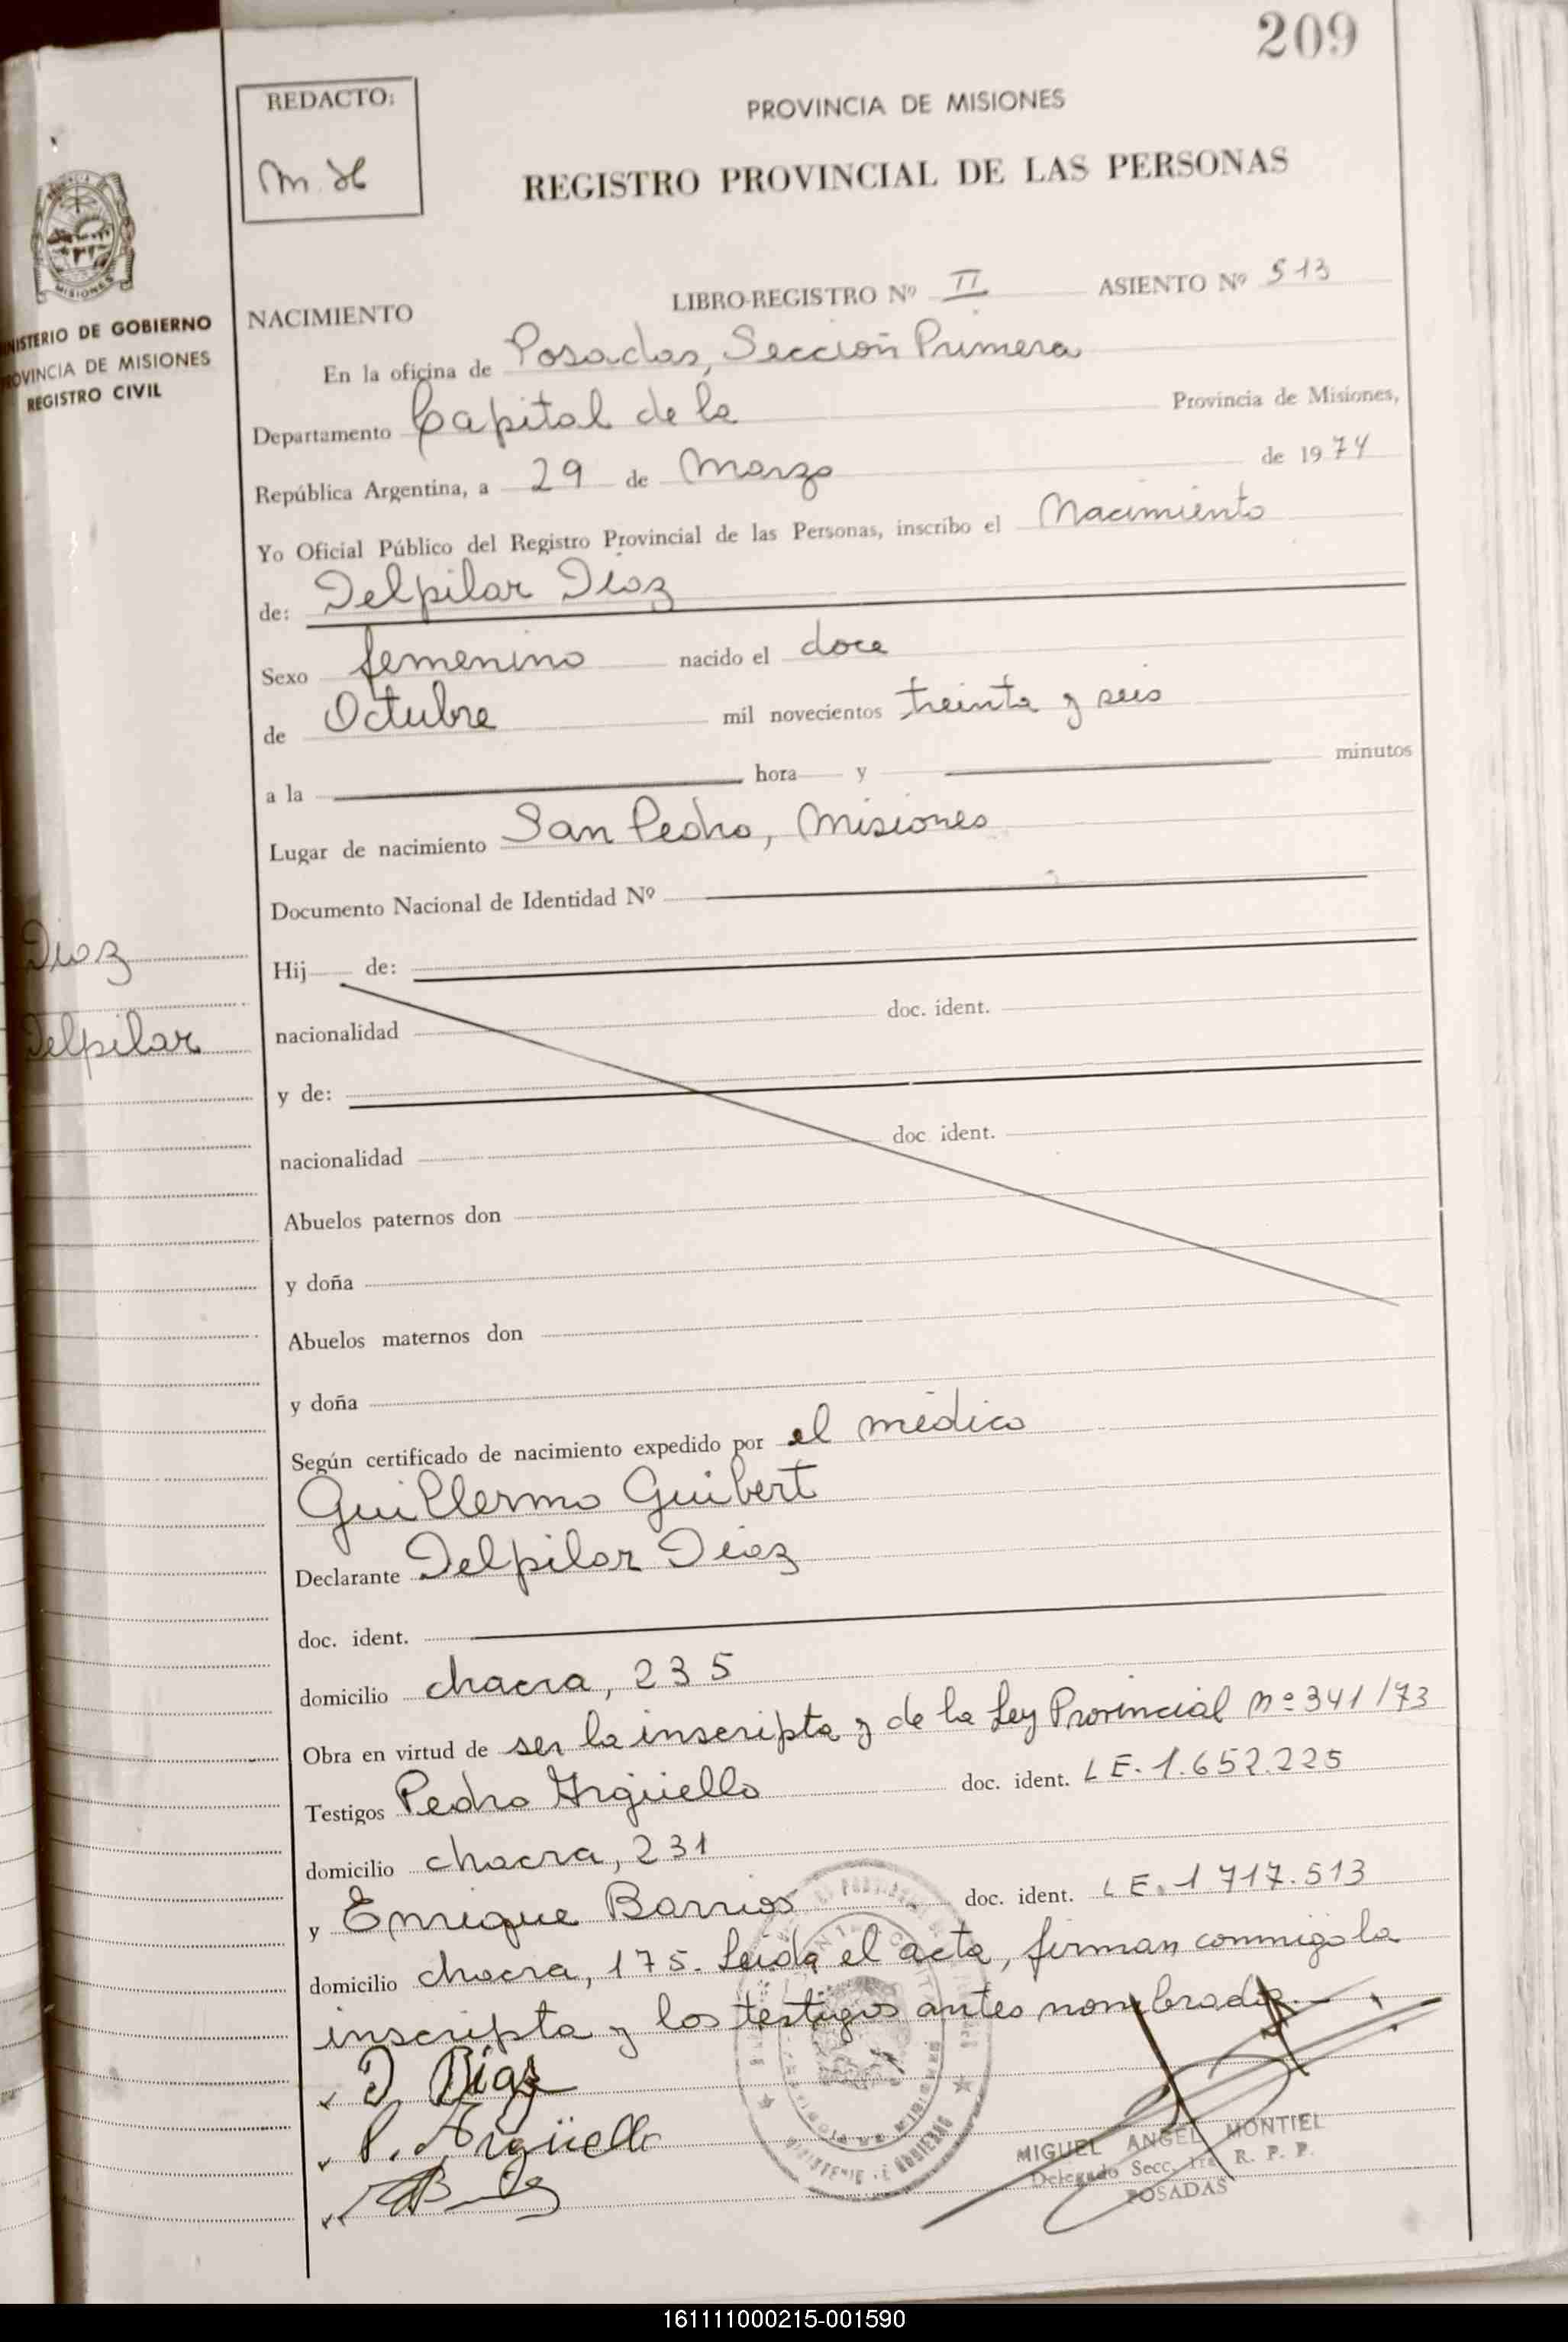 209
REDACTO:
PROVINCIA DE MISIONES
REGISTRO PROVINCIAL DE LAS PERSONAS
MISIONES
NISTERIO DE GOBIERNO
OVINCIA DE MISIONES
REGISTRO CIVIL
NACIMIENTO LIBRO-REGISTRO Nº II ASIENTO Nº 513
En la oficina de Posadas, Sección Primera
Departamento Capital de la Provincia de Misiones,
República Argentina, a 29 de Marzo de 1974
Yo Oficial Público del Registro Provincial de las Personas, inscribo el Nacimiento
de: Delpilar Díaz
Sexo femenino nacido el doce
de Octubre mil novecientos treinta y seis
a la hora y minutos
Lugar de nacimiento San Pedro, Misiones
Documento Nacional de Identidad Nº
Díaz
Delpilar
Hij de:
nacionalidad doc. ident.
y de:
nacionalidad doc ident.
Abuelos paternos don
y doña
Abuelos maternos don
y doña
Según certificado de nacimiento expedido por el médico
Guillermo Guibert
Declarante Delpilar Díaz
doc. ident.
domicilio chacra, 235
Obra en virtud de ser la inscripta y de la Ley Provincial nº 341/73
Testigos Pedro Argüello doc. ident. LE. 1.652.225
domicilio chacra, 231
y Enrique Barrios doc. ident. LE. 1 717.513
domicilio chacra, 175. Leída el acta, firman conmigo la
inscripta y los testigos antes nombrados.-
D Diaz
P. Argüello
MIGUEL ANGEL MONTIEL
Delegado Secc. 1ra. R. P. P.
POSADAS
161111000215-001590